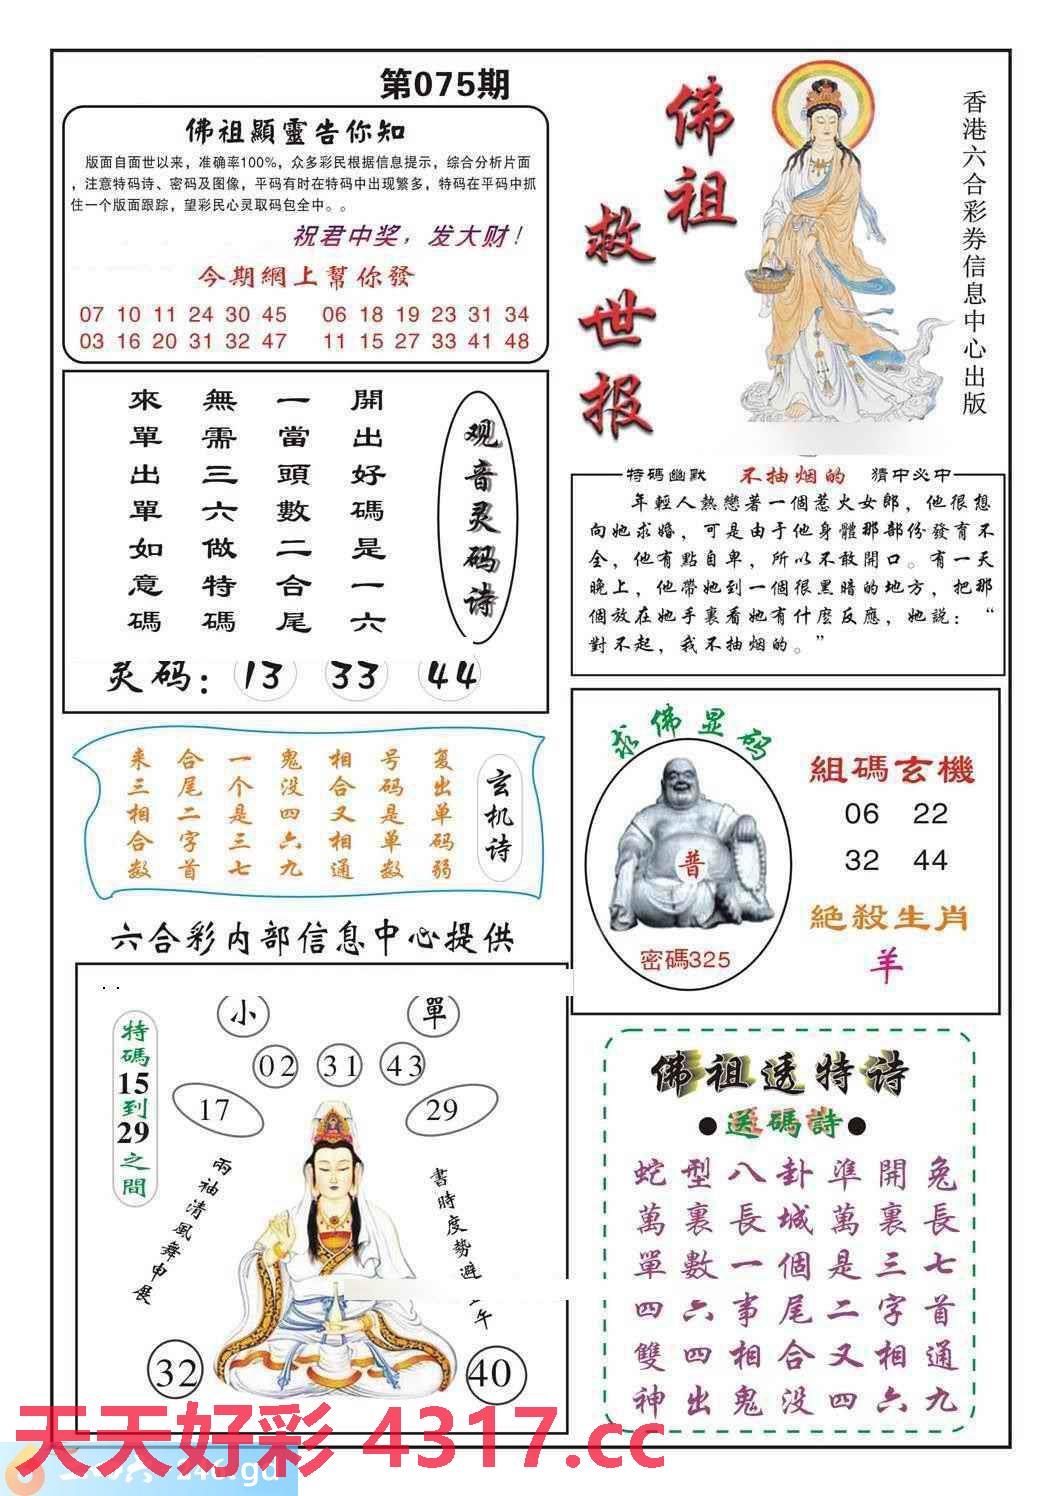 第075期
佛祖顯靈告你知
版面自面世以来，准确率100%，众多彩民根据信息提示，综合分析片面
，注意特码诗、密码及图像，平码有时在特码中出现繁多，特码在平码中抓
住一个版面跟踪，望彩民心灵取码包全中。。
祝君中奖，发大财！
今期網上幫你發
07 10 11 24 30 45 06 18 19 23 31 34
03 16 20 31 32 47 11 15 27 33 41 48
佛祖
救世报
香港六合彩券信息中心出版
观音灵码诗
開出好碼是一六
一當頭數二合尾
無需三六做特碼
來單出單如意碼
灵码：13 33 44
特碼幽默 不抽烟的 猜中必中
年輕人熱戀著一個惹火女郎，他很想
向她求婚，可是由于他身體那部份發育不
全，他有點自卑，所以不敢開口。有一天
晚上，他帶她到一個很黑暗的地方，把那
個放在她手裏看她有什麼反應，她説：“
對不起，我不抽烟的。”
玄机诗
复出单码弱
号码是单数
相合又相通
鬼没四六九
一个是三七
合尾二字首
来三相合数
求佛显码
普
密碼325
組碼玄機
06 22
32 44
絕殺生肖
羊
六合彩内部信息中心提供
小 單
02 31 43
17 29
特碼15到29之間
兩袖清風舞申展
書時度勢避午
32 40
佛祖透特诗
●送碼詩●
蛇型八卦準開兔
萬裏長城萬裏長
單數一個是三七
四六事尾二字首
雙四相合又相通
神出鬼没四六九
天天好彩 4317.cc
246.gd